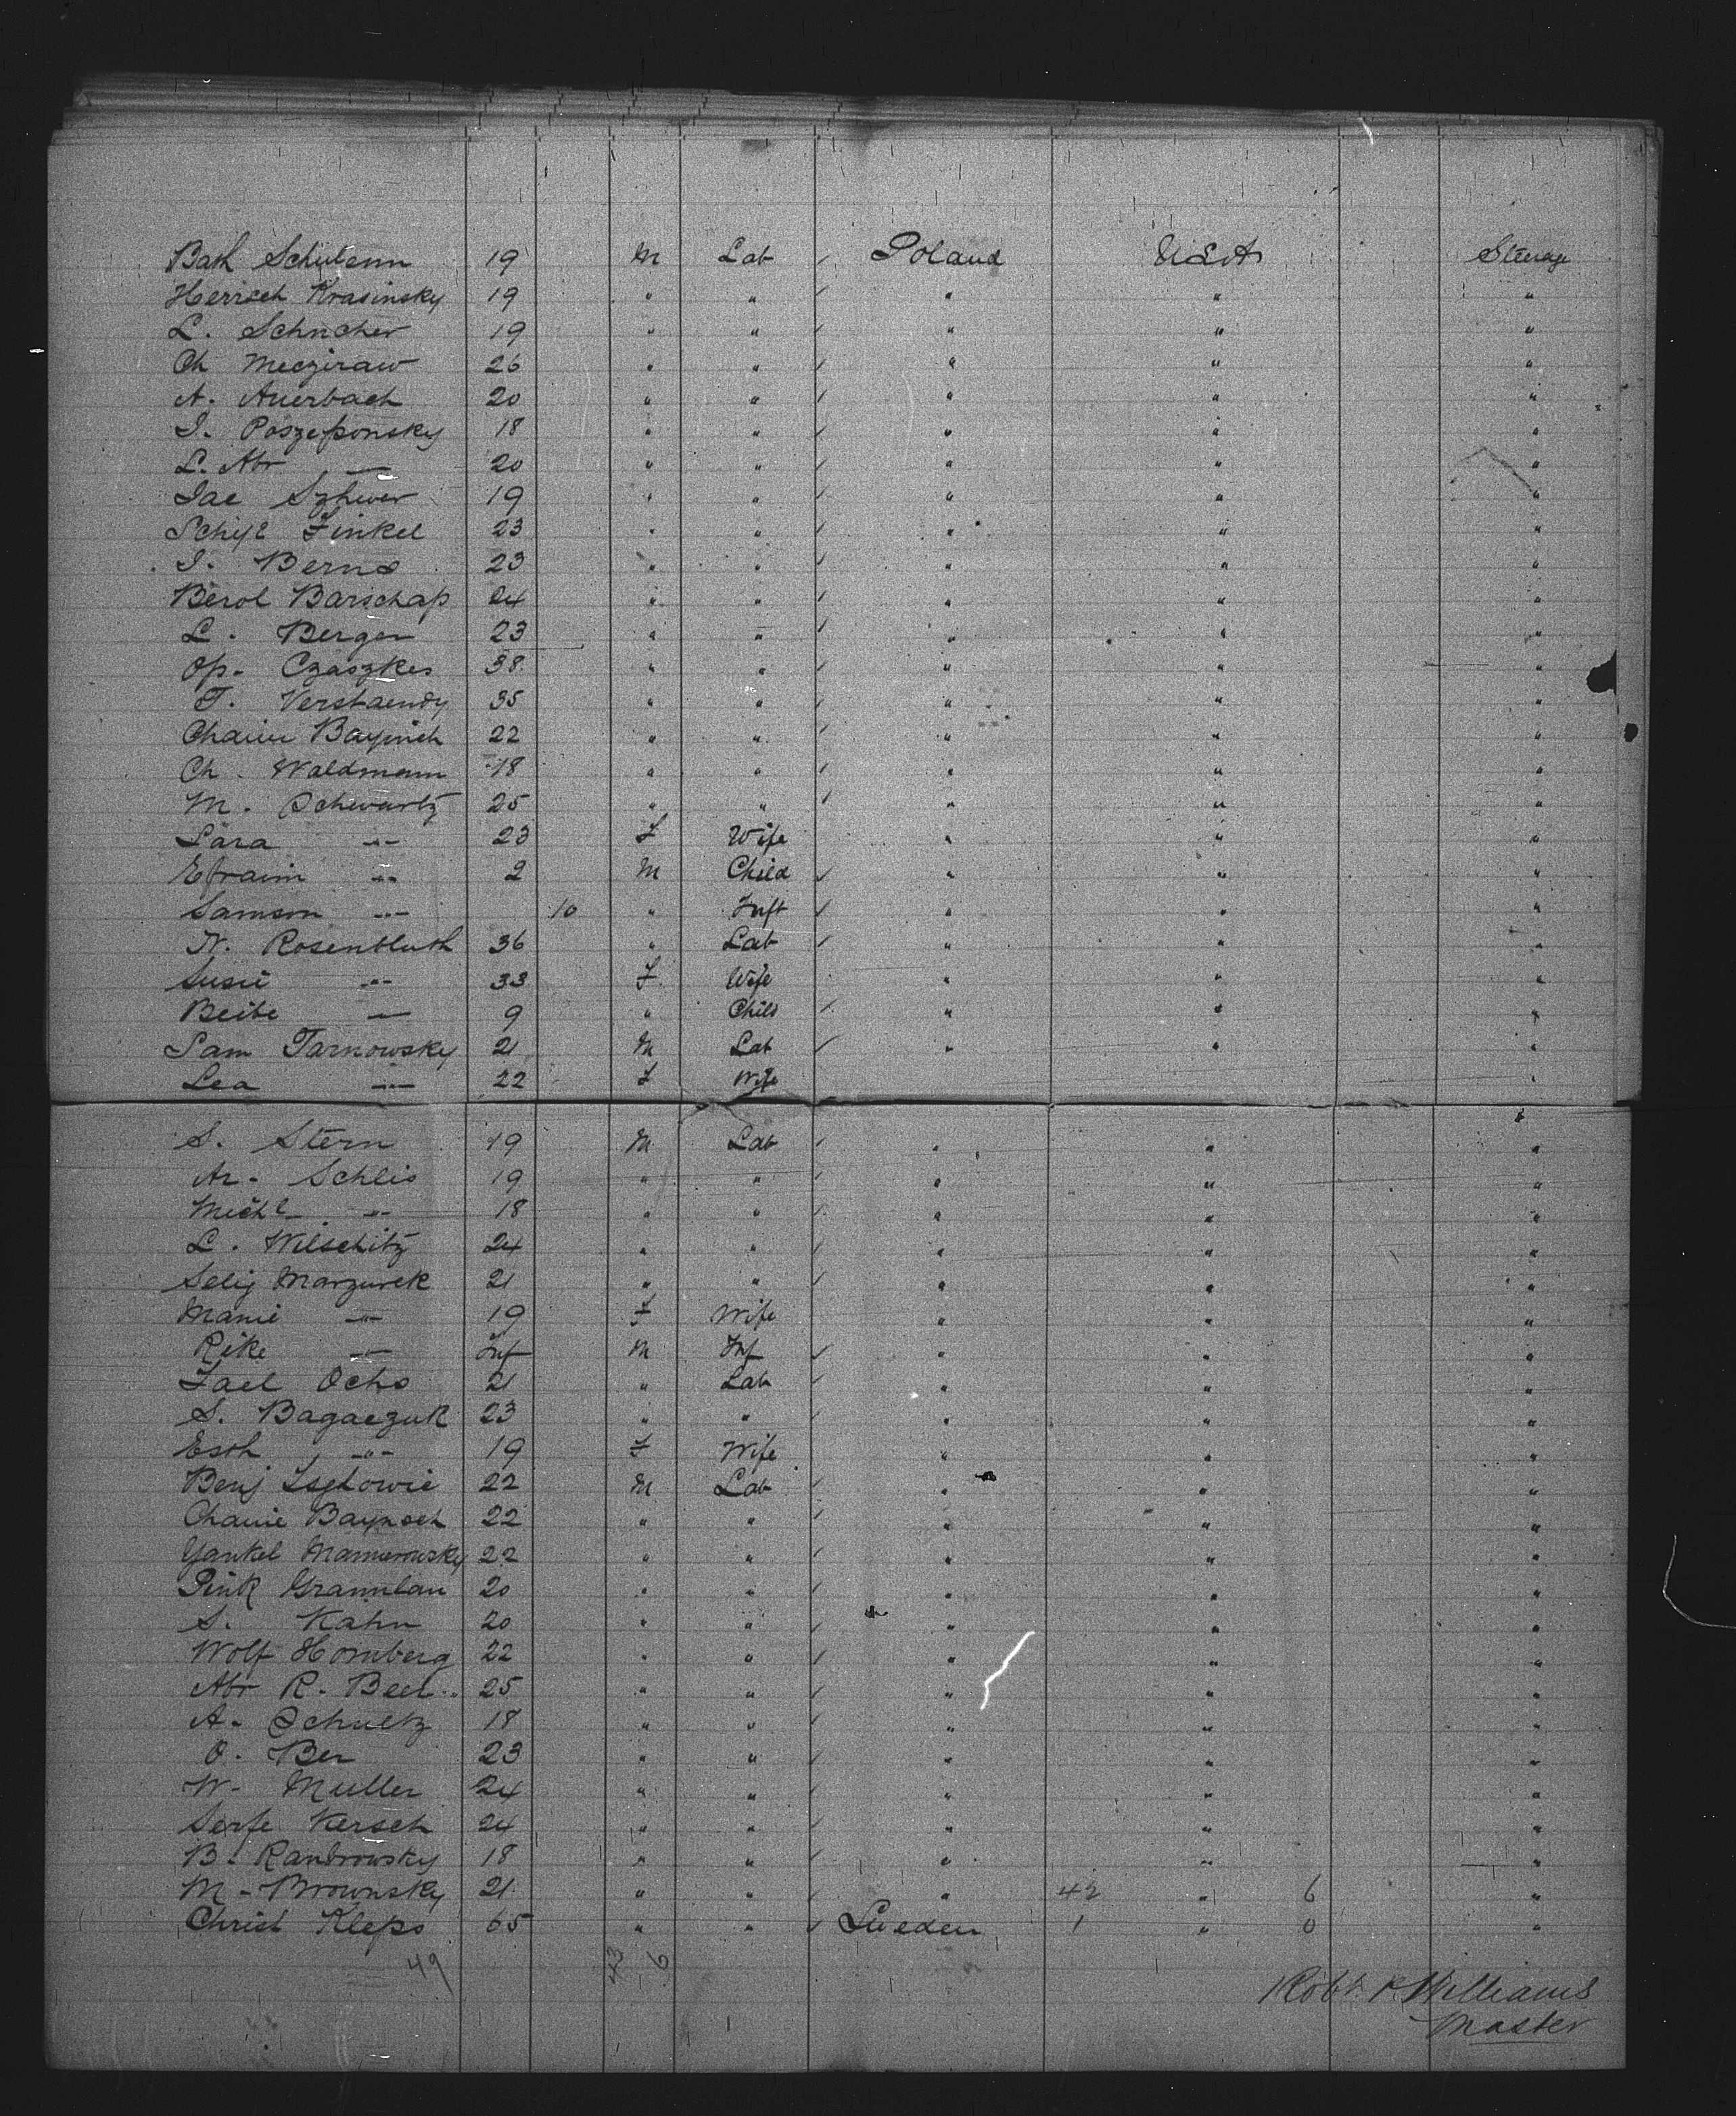 Bash Schulenn 19 M Lab Poland U.S.A Steerage
Herisch Krasinsky 19 " " " " "
L. Schucher 19 " " " " "
Ch Mecziraw 26 " " " " "
A. Auerbach 20 " " " " "
I. Poszeponsky 18 " " " " "
L. Abr — 20 " " " " "
Isac 19 " " " " "
Finkel 23 " " " " "
I. Berns 23 " " " " "
Berol Barschap 24 " " " " "
L. Berger 23 " " " " "
Op. Czaszkes 38 " " " " "
T. Verstaendy 35 " " " " "
Chaim 22 " " " " "
Ch. Waldmann 18 " " " " "
M. Schwartz 25 " " " " "
Sara " 23 F Wife " " "
Efraim " 2 M Child " " "
Samson " 10 " Inft " " "
N. Rosenbluth 36 " Lab " " "
Susie " 33 F Wife " " "
Beibe — 9 " Child " " "
Sam Tarnowsky 21 M Lab " " "
Lea " 22 F Wife "
S. Stern 19 M Lab " " "
Ar. Schlis 19 " " " " "
Michl " 18 " " " " "
L. Wilschitz 24 " " " " "
Selig Marzurek 21 " " " " "
Manie " 19 F Wife " " "
Rike " Inf M Inf " " "
Ochs 21 " Lab " " "
S. Bagaezuk 23 " " " " "
Esth " 19 F Wife " " "
Benj 22 M Lab " " "
22 " " " " "
Yankel 22 " " " " "
20 " " " " "
S. Kahn 20 " " " " "
Wolf Homberg 22 " " " " "
Abr R. Beel 25 " " " " "
A. Schultz 18 " " " " "
O. Ber 23 " " " " "
W. Muller 24 " " " " "
Serfe Kersch 24 " " " " "
B. Rambrowsky 18 " " " " "
M. Brownsky 21 " " " 42 " 6 "
Christ Kleps 65 " " Sweden 1 " 0 "
49 43 6
Robt. R. Williams
Master